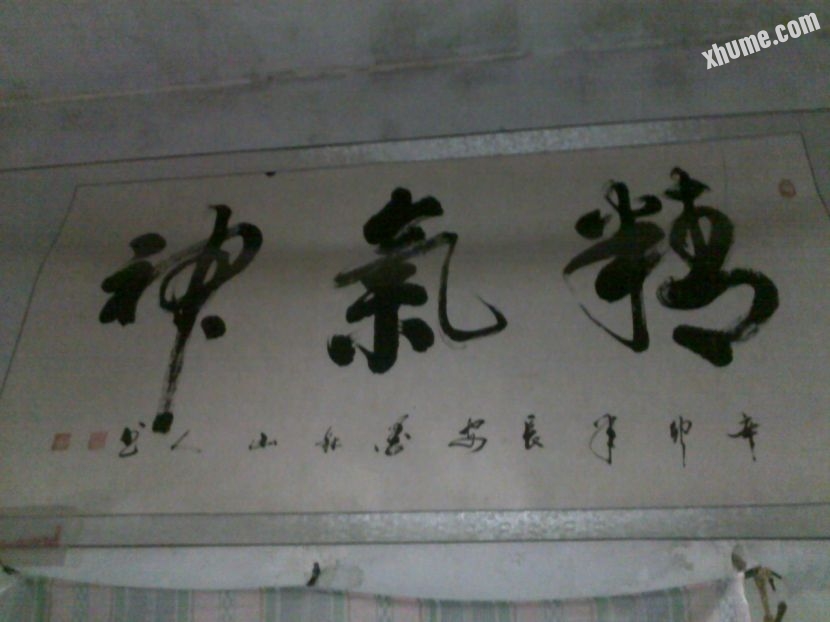 xhume.com
精氣神
辛卯年長安山人书